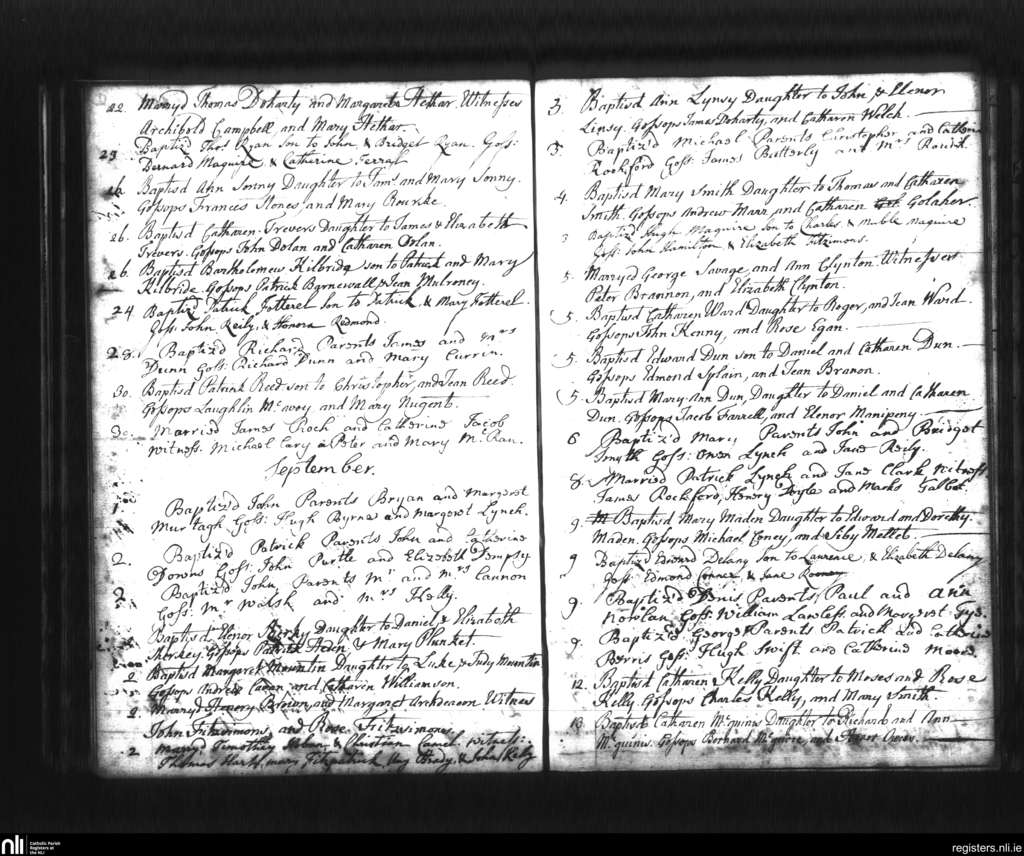 22 Marryd Thomas Doharty and Margareta Hethar. Witnesses
Archibold Campbell, and Mary Hethar.
23 Baptiz'd Thos Ryan Son to John & Bridget Ryan. Goss:
Bernard Maguire & Catherine Ferral
26. Baptisd Ann Sonny Daughter to Jams and Mary Sonny.
Gossops Frances Stones, and Mary Rourke.
26. Baptisd Catharen Trevers Daughter to James & Elizabeth
Trevers. Gossops John Dolan and Catharen Dolan.
26 Baptisd Bartholomew Kilbride son to Patrick and Mary
Kilbride. Gossops Patrick Barnewall & Jean Mulroney.
24 Baptiz'd Patrick Fotterel son to Patrick, & Mary Fotterel.
Goss: John Reily, & Honora Redmond.
28. Baptiz'd Richard Parents James and Mrs
Dunn Goss: Richard Dunn and Mary Currin.
30. Baptisd Patrick Reed son to Christopher, and Jean Reed.
Gossops Laughlin McAvoy and Mary Nugent.
30. Married James Roch and Catherine Jacob
witness. Michael Cary Peter and Mary
September.
1. Baptiz'd John Parents Bryan and Margeret
Murtagh Goss: Hugh Byrne and Margeret Lynch.
2. Baptiz'd Patrick Parents John and Catherine
Downs Goss: John Purtle and Elizebeth Dempsy
2 Baptiz'd John, Parents Mr and Mrs Cannon
Goss: Mr Walsh and Mrs Kelly.
2 Baptisd Elenor Daughter to Daniel & Elizabeth
Gossops Patrick Aden & Mary Plunket.
2 Baptisd Margaret Mountin Daughter to Luke, & Judy Mountin
Gossops Andrew and Catharin Williamson.
2 Marryd Henery Brown, and Margaret Archdeacon Witness
John Fitzsimons, and Rose Fitzsimons
2 Marryd Timothey & Christian witness:
Thomas Mary Fitzpatrick, Brady, & John Kelly
3. Baptisd Ann Lynsy Daughter to John & Elenor
Linsy. Gossops James Doharty, and Catharen Welch
3. Baptiz'd Michael Parents Christopher and
Rockford Goss: James Butterly and Mrs
4. Baptisd Mary Smith Daughter to Thomas and Catharen
Smith. Gossops Andrew Marr, and Catharen Golaher.
3 Baptiz'd Hugh Maguire son to Charles, & Maguire
Goss: John Hamilton, & Elizabeth Fitzimons.
5. Marryed George Savage, and Ann Clynton. Witnesses
Peter Brannon, and Elizabeth Clynton.
5. Baptisd Catharen Ward Daughter to Roger, and Jean Ward.
Gossops John Kenny, and Rose Egan.
5. Baptisd Edward Dun son to Daniel and Catharen Dun.
Gossops Edmond Sylain, and Jean Branon.
5. Baptisd Mary Ann Dun, Daughter to Daniel and Catharen
Dun. Gossops Jacob Farrell, and Elenor Manipeny.
6 Baptiz'd Mary Parents John and Bridget
Smyth Goss: Owen Lynch and Jane Reily.
8. Married Patrick Lynch and Jane Clark witness
James Rockford, Henry Doyle and Marks Talbot
9. Baptisd Mary Maden Daughter to Edward and Dorithy
Maden. Gossops Michael Coney, and
9 Baptiz'd Edward Delany Son to Laurence, & Elizabeth Delany
Goss: Edmond Connor & Jane Rooney
9. Baptiz'd Denis Parents Paul and Ann
Nowlan Goss: William Lawless and Margeret
9. Baptiz'd George Parents Patrick and Catherine
Berris Goss: Hugh Swift and Catherine Moore.
12. Baptisd Catharen Kelly Daughter to Moses and Rose
Kelly. Gossops Charles Kelly, and Mary Smith.
13 Baptisd Catharen McQuinis Daughter to Richard and Ann
McQuinis. Gossops
nli
Catholic Parish
Registers at
the NLI
registers.nli.ie